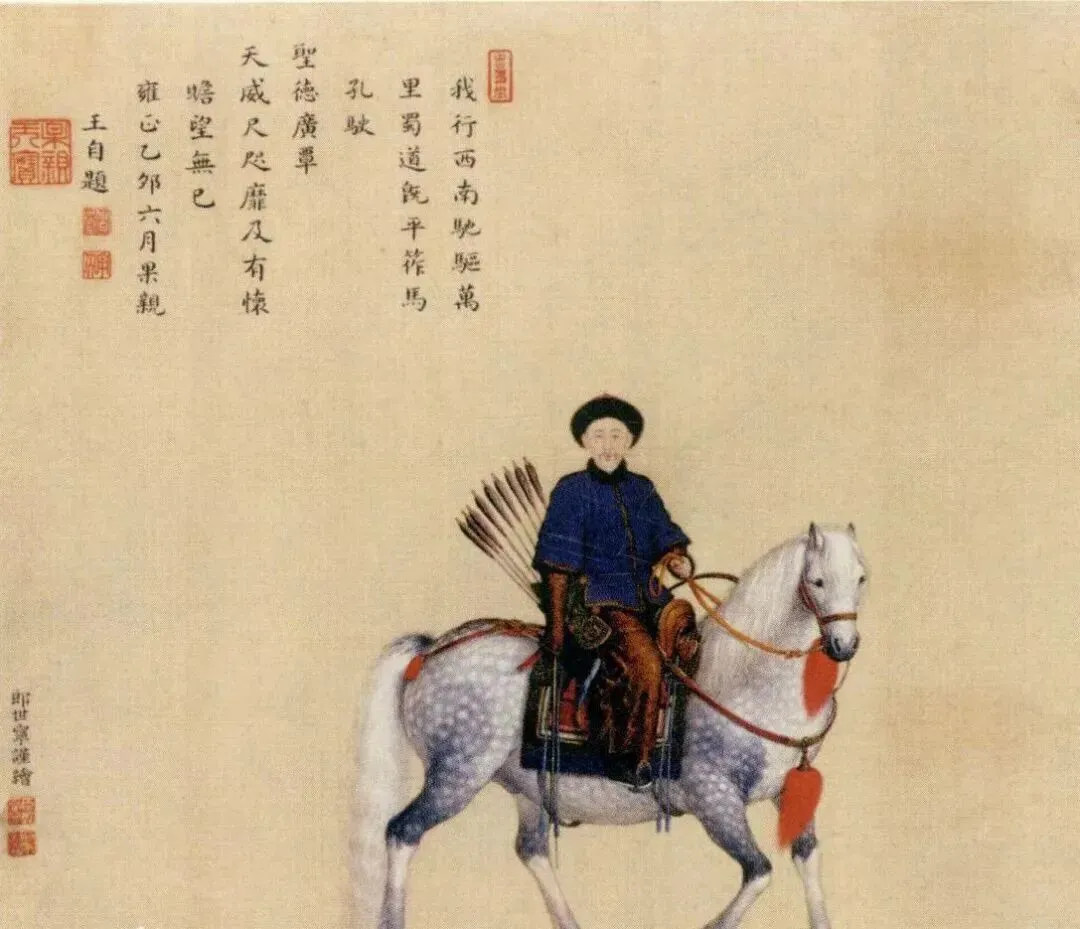 我行西南馳驅萬
里蜀道旣平筰馬
孔駛
聖德廣覃
天威尺咫靡及有懷
瞻望無已
雍正乙卯六月果親
王自題
果親王寶
郎世寧謹繪